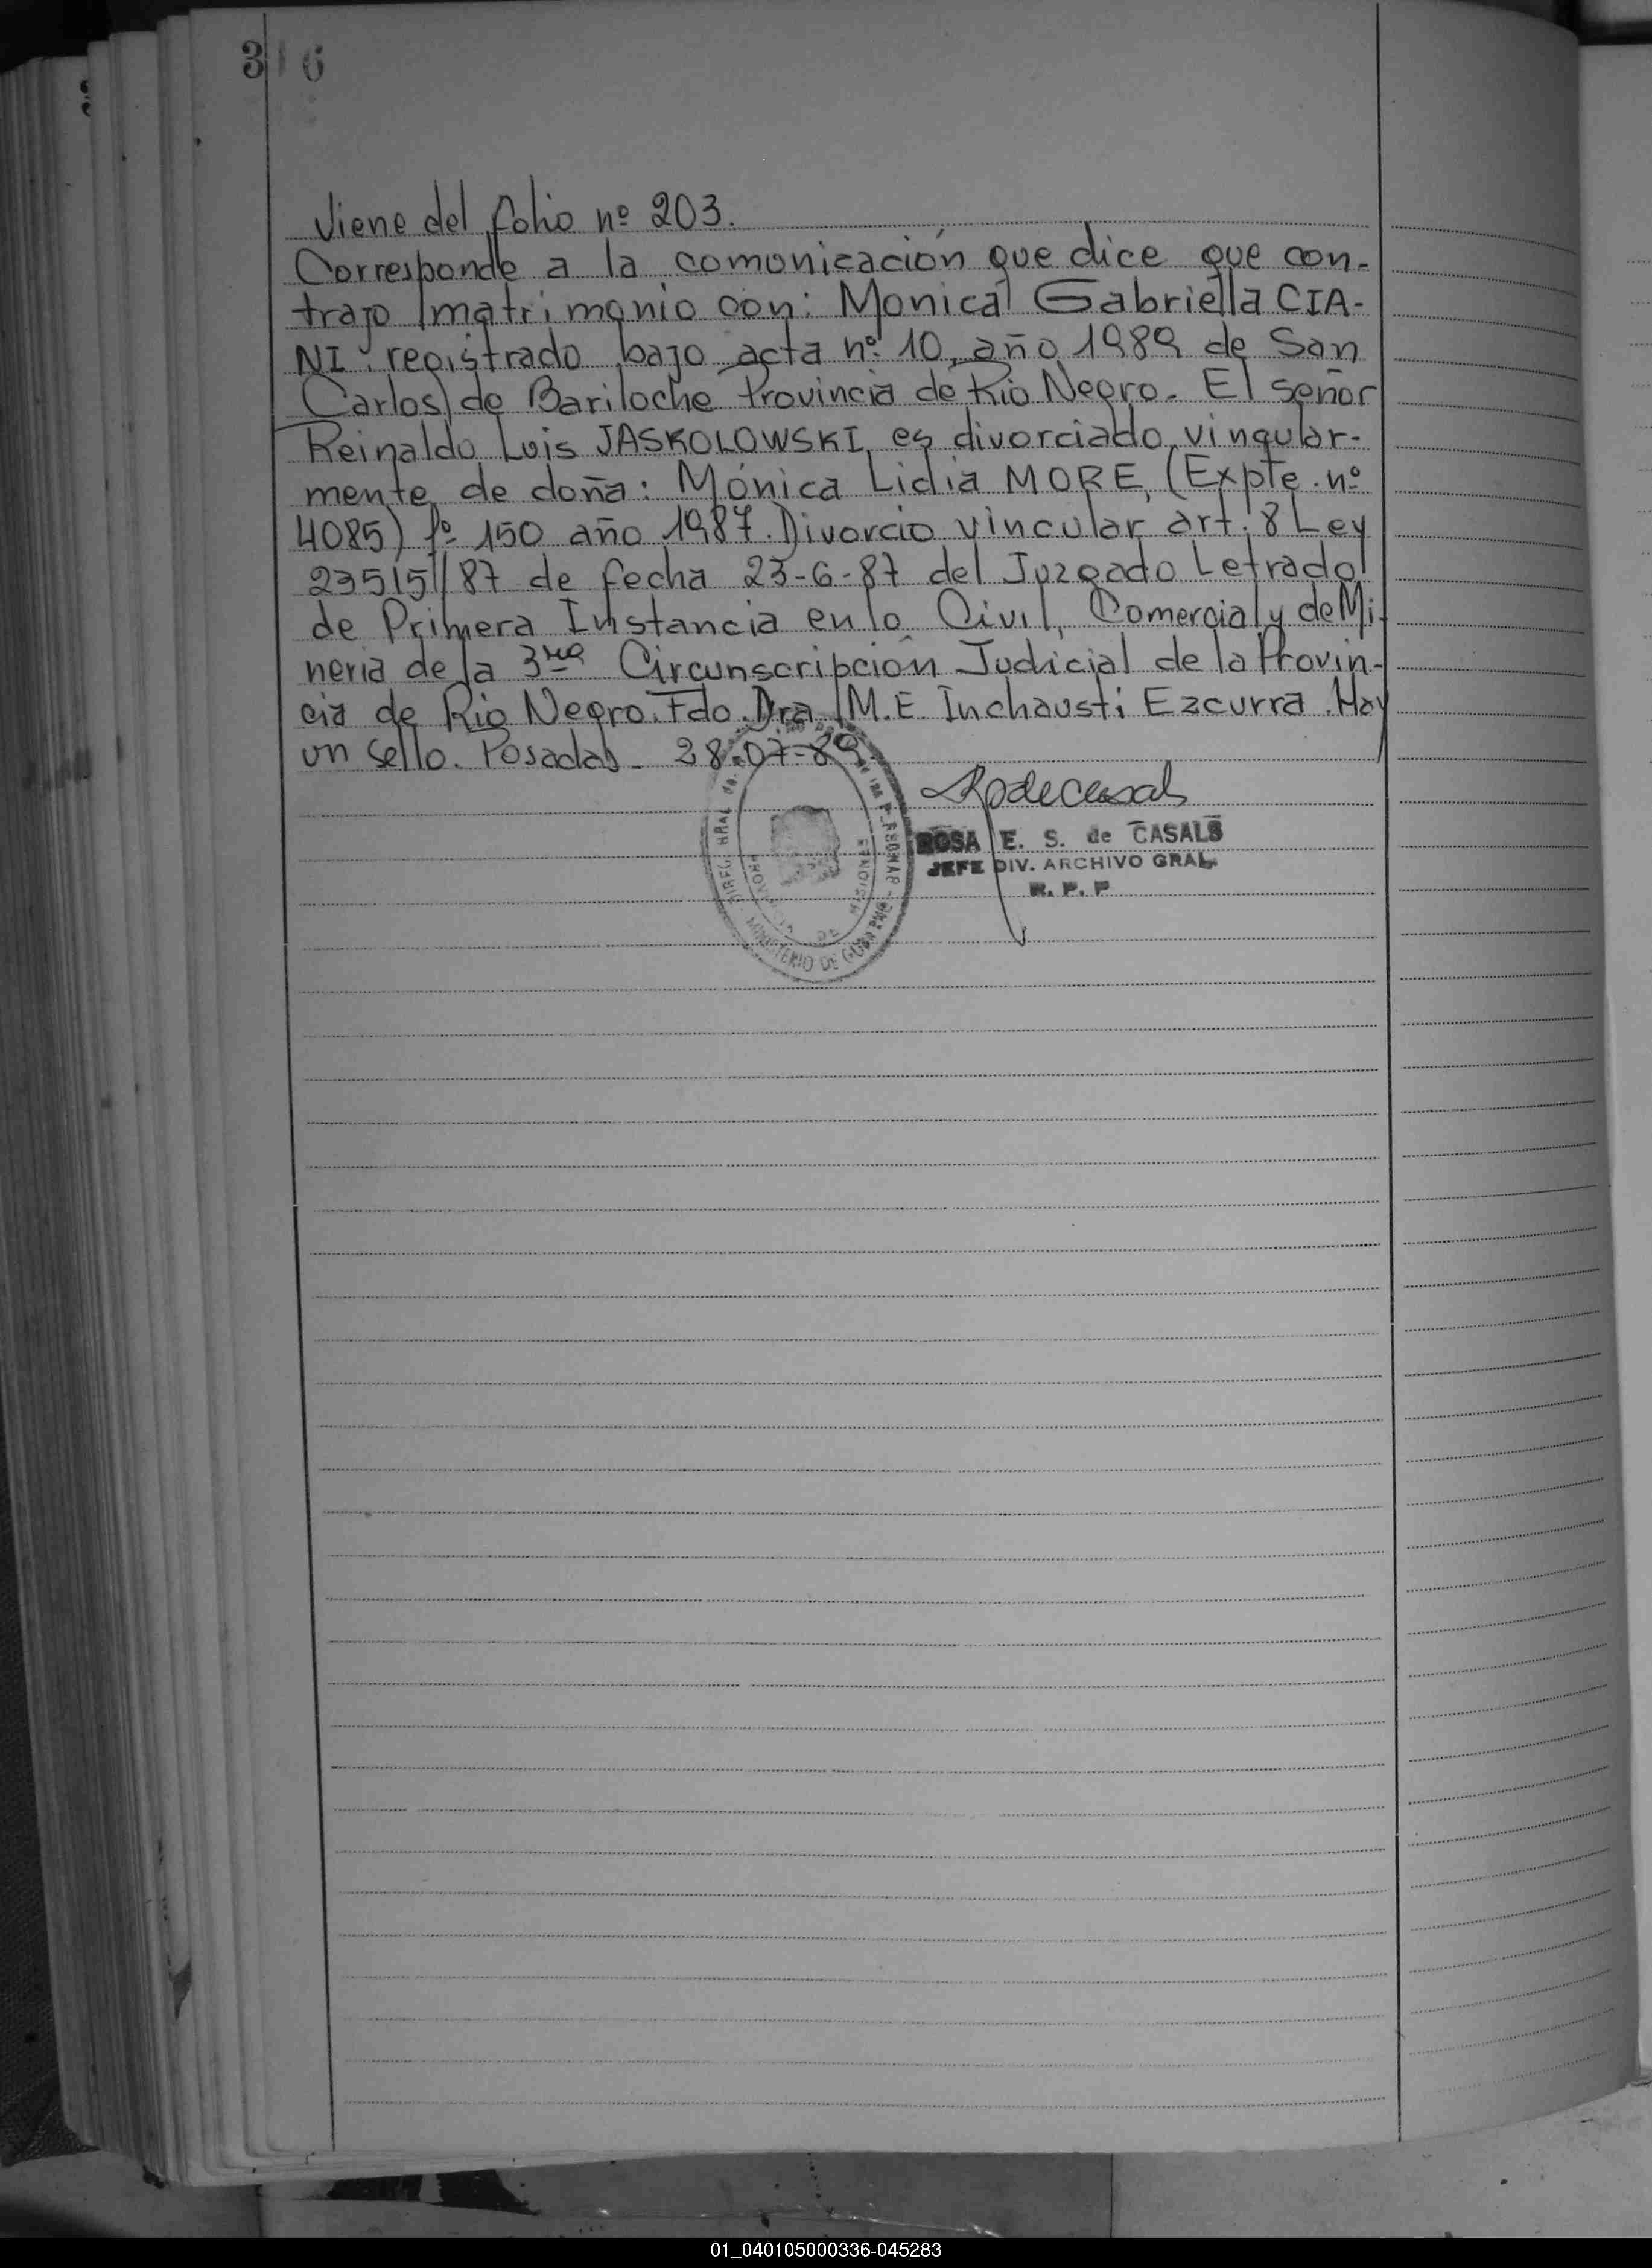 316
Viene del folio nº 203.
Corresponde a la comunicación que dice que con-
trajo matrimonio con: Monica Gabriella CIA-
NI. registrado bajo acta nº 10, año 1989 de San
Carlos de Bariloche Provincia de Rio Negro. El señor
Reinaldo Luis JASKOLOWSKI, es divorciado vingular-
mente de doña: Mónica Lidia MORE, (Expte. nº
4085) fº 150 año 1987. Divorcio vincular art. 8 Ley
23515//87 de fecha 23-6-87 del Juzgado Letrado
de Primera Instancia en lo Civil, Comercial y de Mi-
neria de la 3ra Circunscripción Judicial de la Provin-
cia de Rio Negro. Fdo. Dra. M.E. Inchausti Ezcurra. Hay
un sello. Posadas. 28-07-89.
ROSA E. S. de CASALS
JEFE DIV. ARCHIVO GRAL.
R. P. P
MINISTERIO DE
01_040105000336-045283